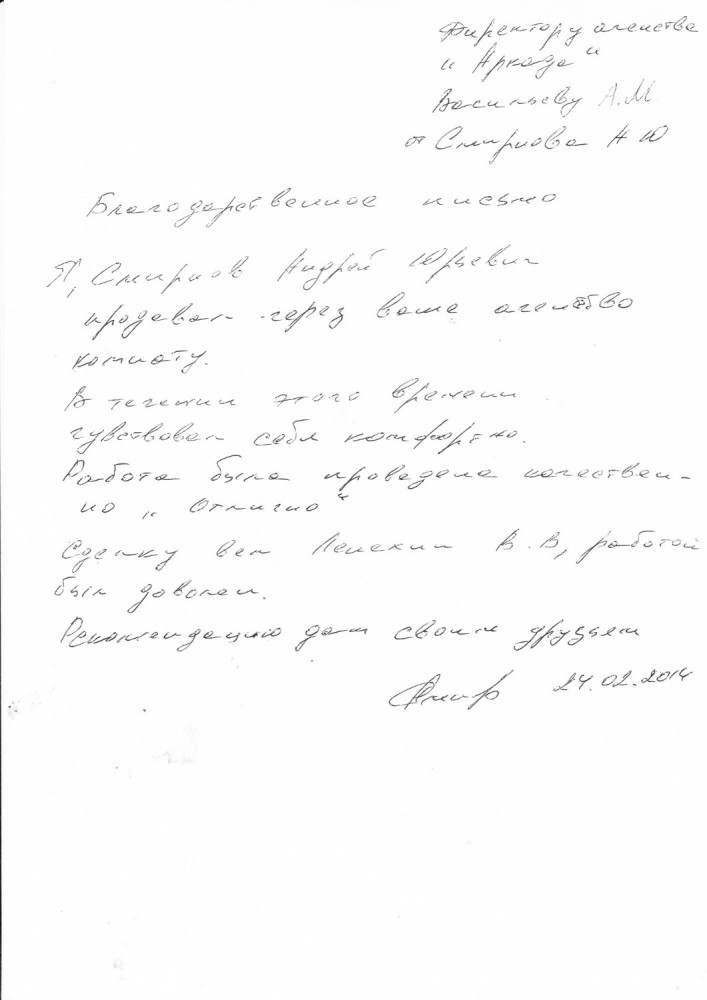 Директору агенства
"Аркада"
Васильеву А.М.
от Смирнова А Ю
Благодарственное письмо
Я, Смирнов Андрей Юрьевич
продавал через ваше агенство
комнату.
В течении этого времени
чувствовал себя комфортно.
Работа была проведена качествен-
но „Отлично"
Сделку вел В.В, работой
был доволен.
Рекомендацию дам своим друзьям
24.02.2014